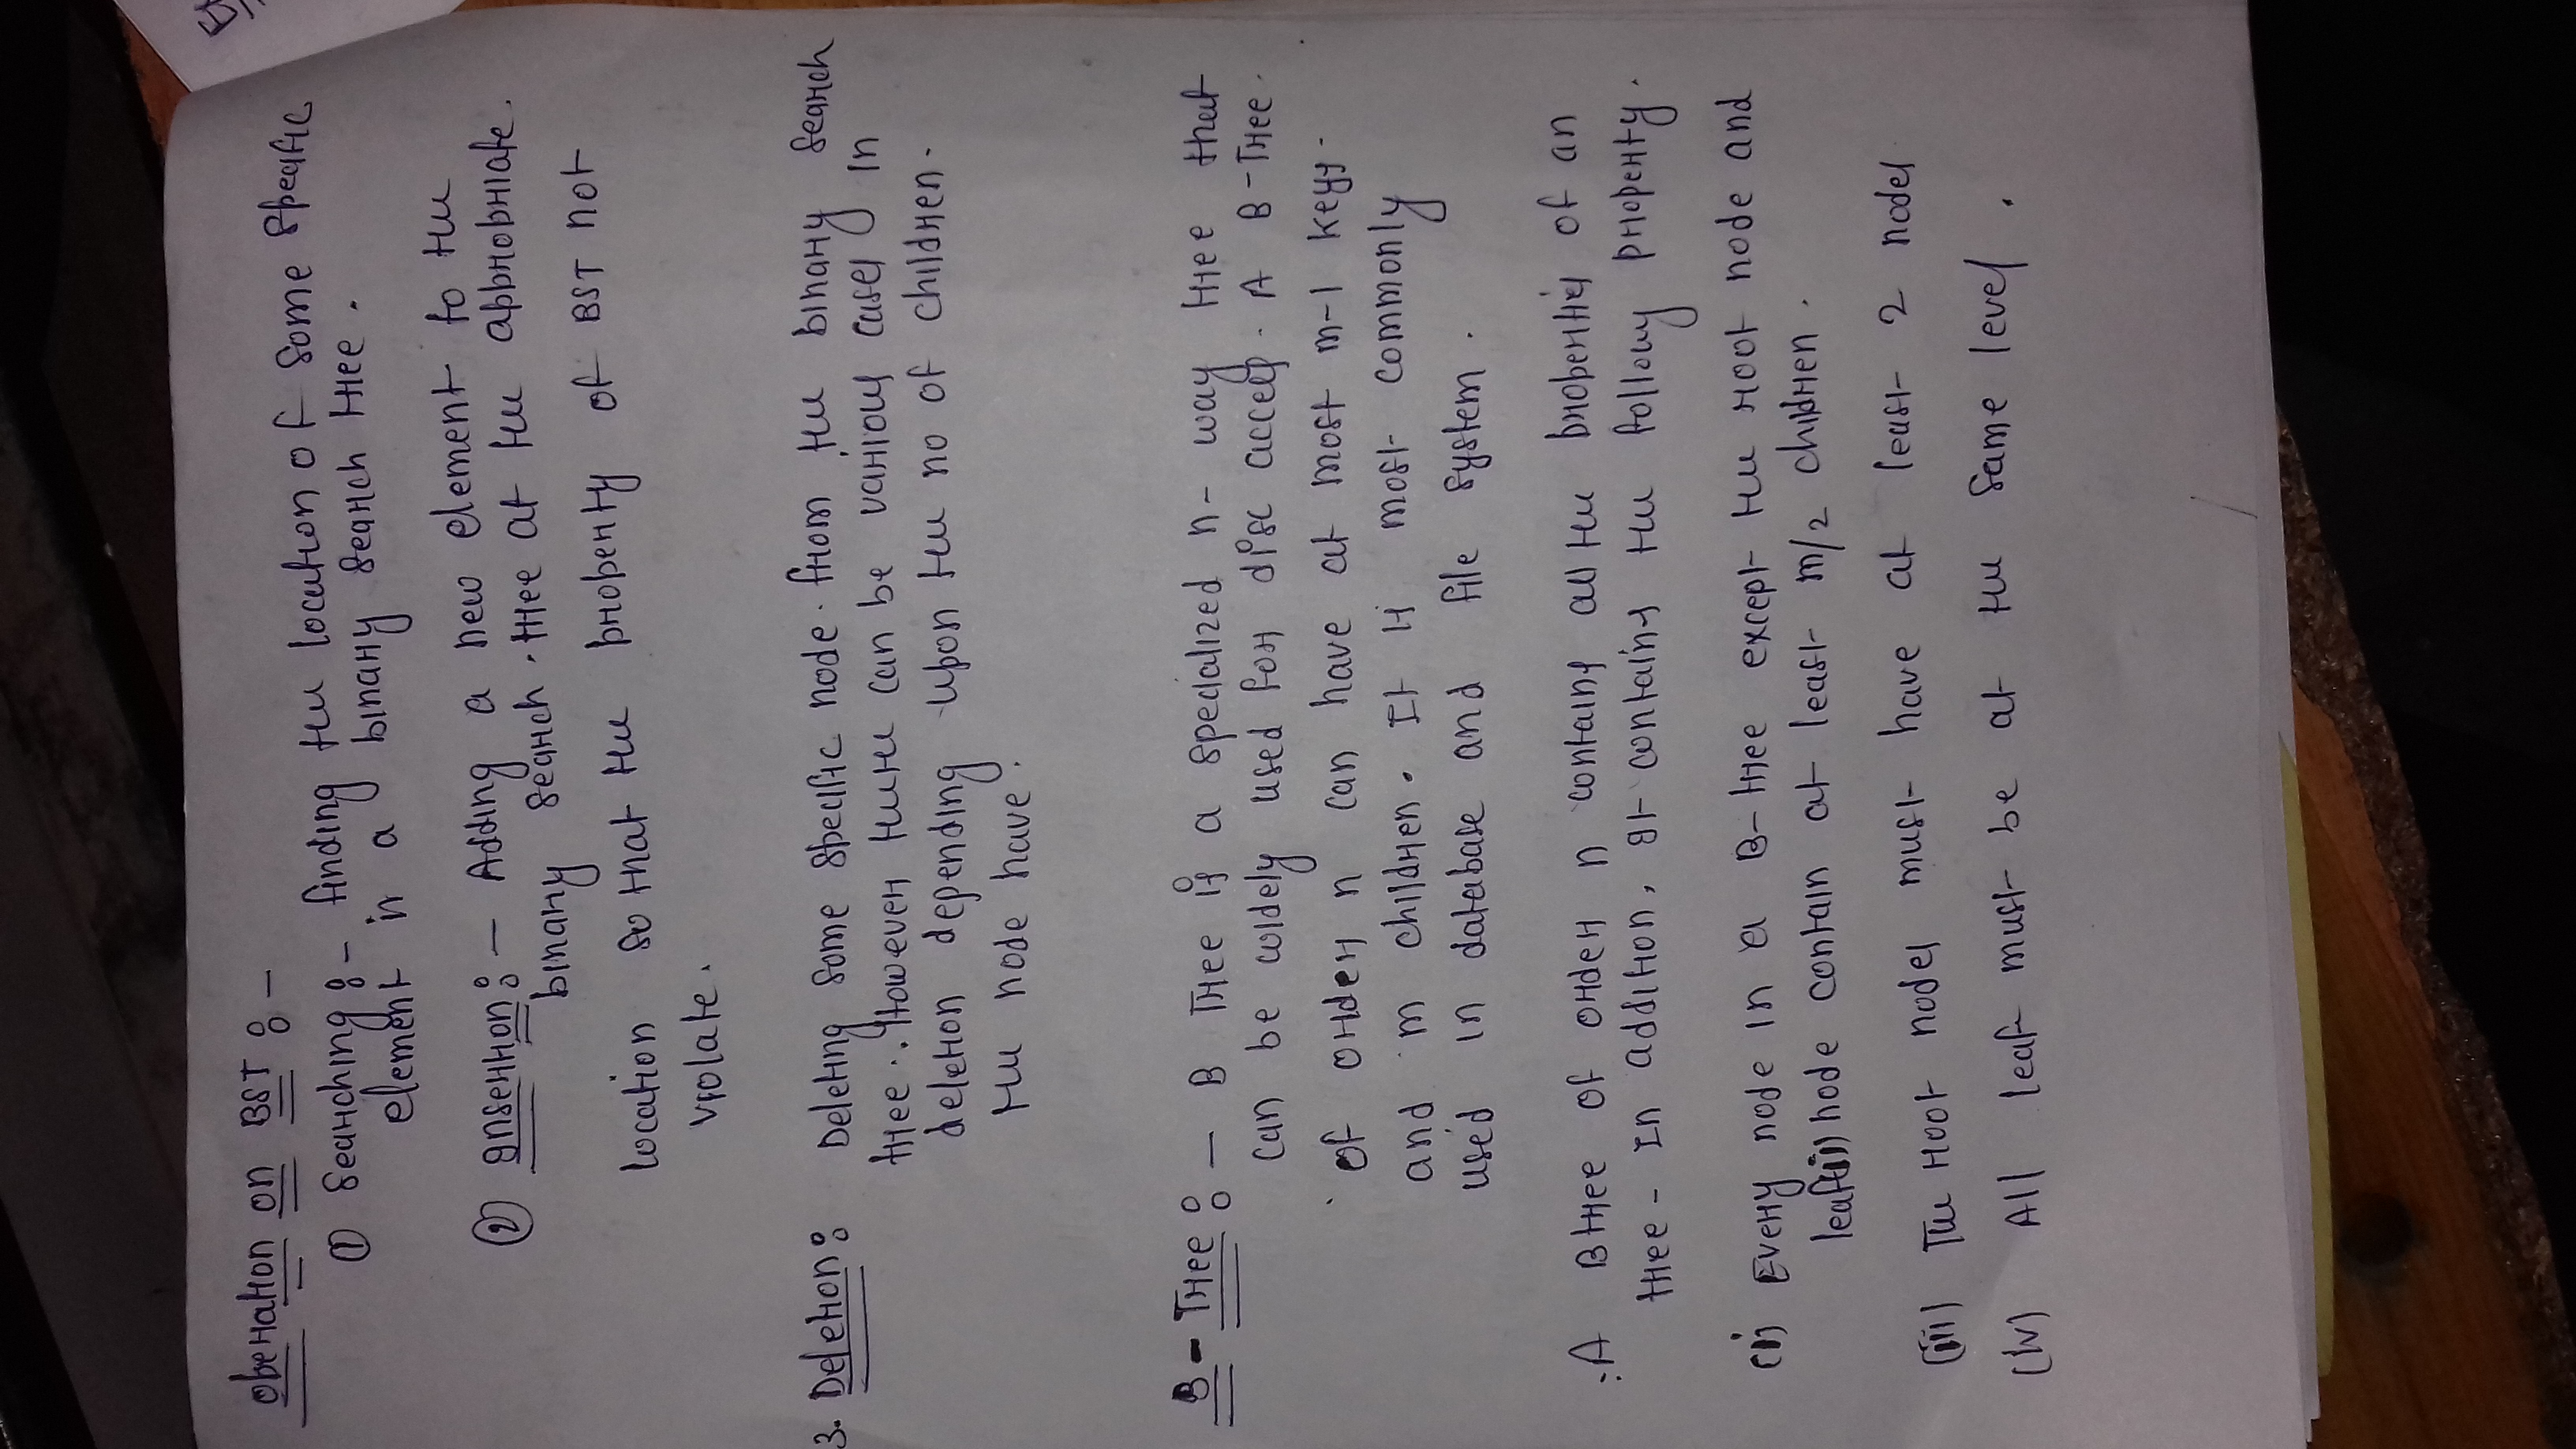 Operation on BST :-
① Searching :- finding the location of some specific
element in a binary search tree.
② Insertion :- Adding a new element to the
binary search. tree at the appropriate.
location so that the property of BST not
violate.
3. Deletion: Deleting some specific node. from the binary search
tree.. However there can be various cases in
deletion depending upon the no of children.
the node have.
B-Tree :- B Tree is a specialized n-way tree that
can be widely used for disc access. A B-Tree.
of order n can have at most m-1 keys.
and m children. It is most commonly
used in database and file system.
:A B tree of order n contains all the properties of an
tree - In addition, It contains the follows property.
(i) Every node in a B-tree except the root node and
leaf(ii) node contain at least m/2 children.
(iii) The root nodes must have at least 2 nodes
(iv) All leaf must be at the same level.